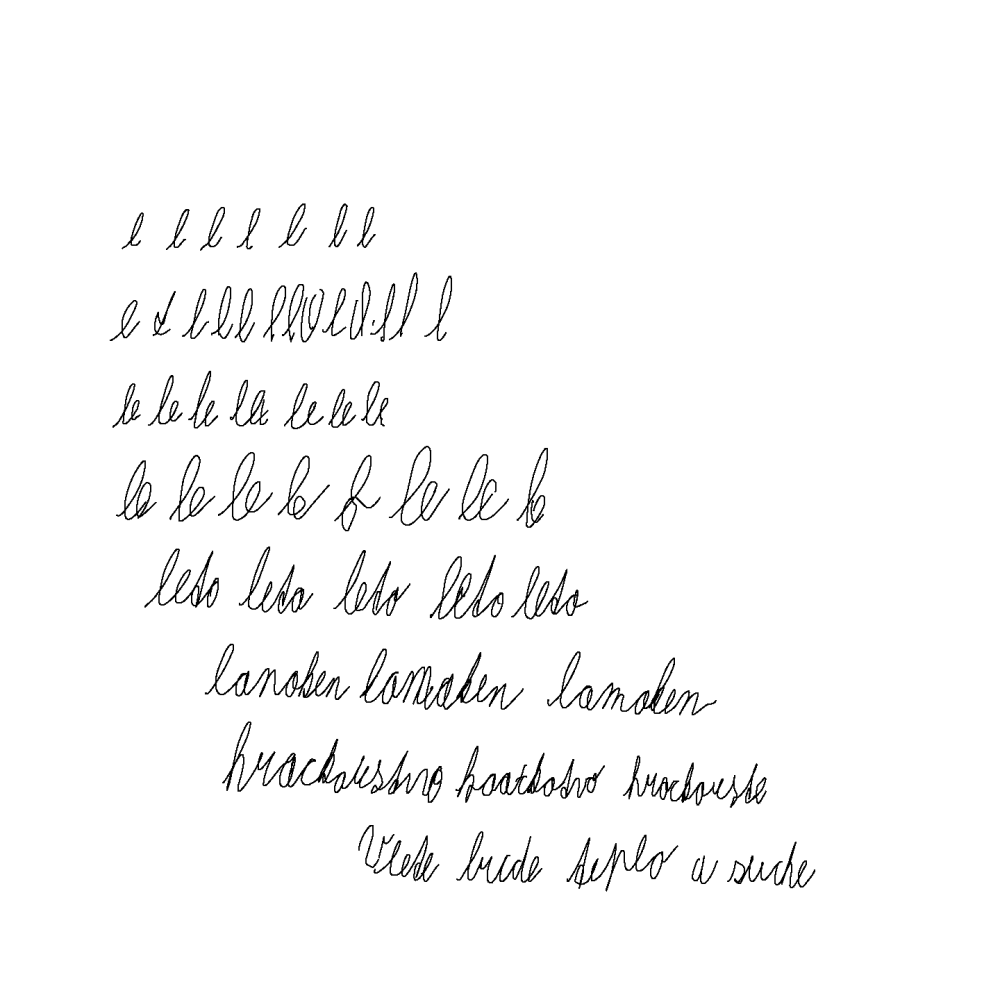 l l l l l l l
l l l l l l l l l l l l l l
le le le le le le le
le le le le le le le le
leto leto leto leto leto
lanoken lamoken lamoken
hrackarstvo
V lete bude teplo a suche